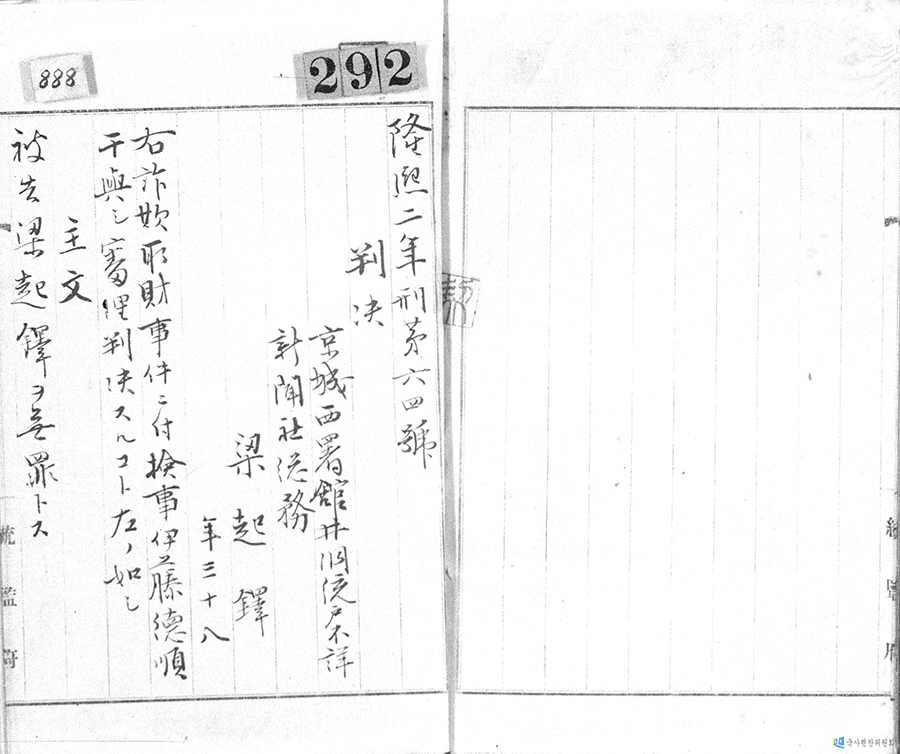 888
292
隆熙二年刑第六四號
判決
京城西署舘井洞統戸不詳
新聞社総務
梁起鐸
年三十八
右詐欺取財事件ニ付検事伊藤德順
干與シ審理判決スルコト左ノ如シ
主文
被告梁起鐸ヲ無罪トス
국사편찬위원회